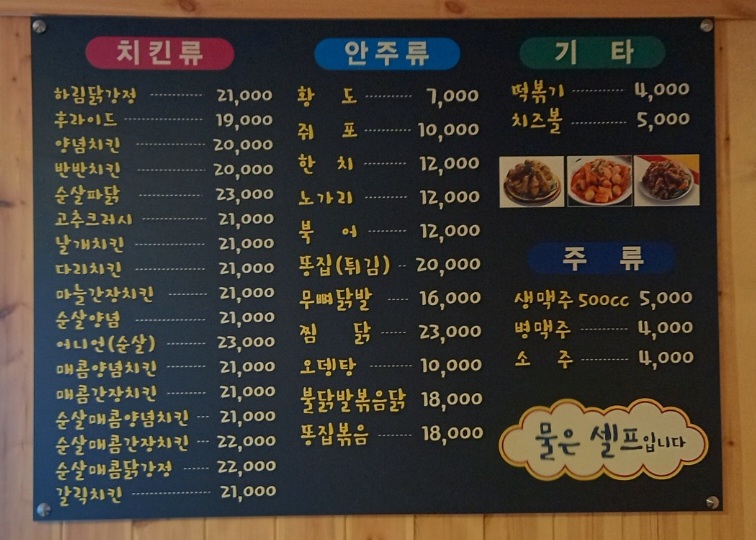 치킨류
하림닭강정 21,000
후라이드 19,000
양념치킨 20,000
반반치킨 20,000
순살파닭 23,000
고추크러시 21,000
날개치킨 21,000
다리치킨 21,000
마늘간장치킨 21,000
순살양념 21,000
어니언(순살) 23,000
매콤양념치킨 21,000
매콤간장치킨 21,000
순살매콤양념치킨 21,000
순살매콤간장치킨 22,000
순살매콤닭강정 22,000
갈릭치킨 21,000
안주류
황 도 7,000
쥐 포 10,000
한 치 12,000
노가리 12,000
북 어 12,000
똥집(튀김) 20,000
무뼈닭발 16,000
찜 닭 23,000
오뎅탕 10,000
불닭발볶음닭 18,000
똥집볶음 18,000
기 타
떡볶기 4,000
치즈볼 5,000
주 류
생맥주 500cc 5,000
병맥주 4,000
소 주 4,000
물은 셀프입니다